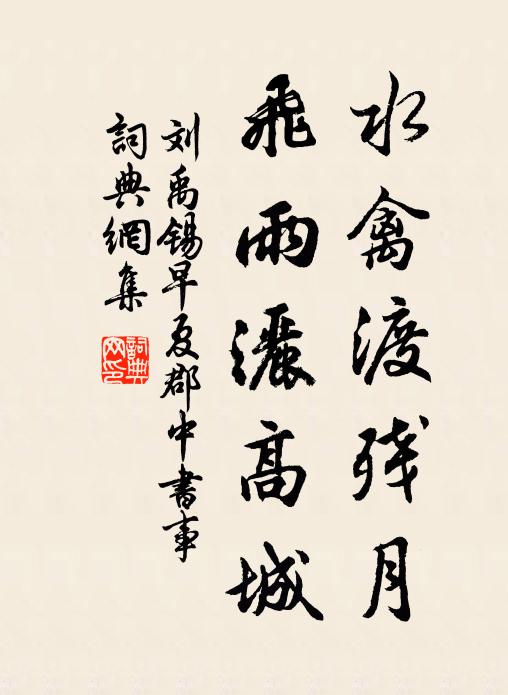 水禽渡残月
飛雨灑高城
刘禹锡早夏郡中書事
詞典網集
詞典
网印